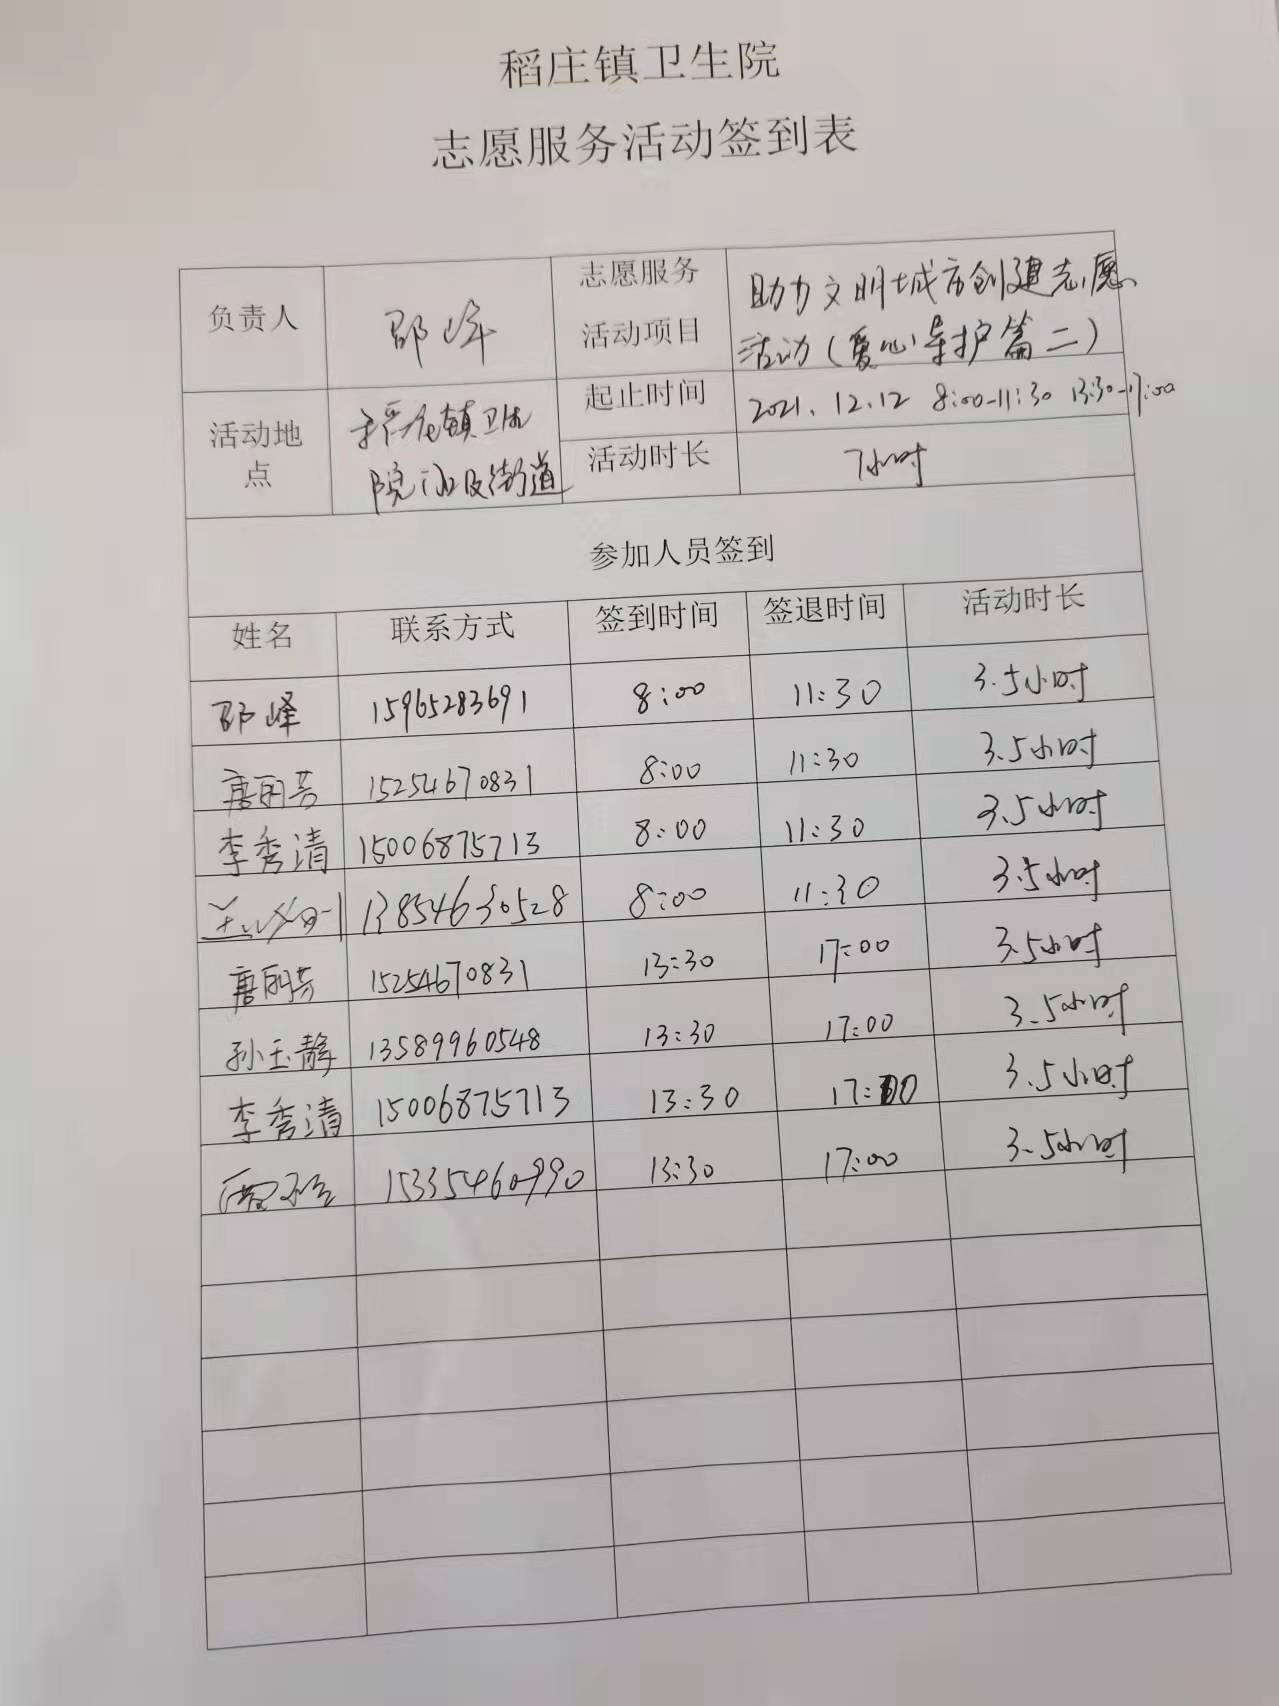 稻庄镇卫生院
志愿服务活动签到表
负责人 邵峰 志愿服务活动项目 助力文明城市创建志愿
活动(爱心导护篇二)
活动地点 稻庄镇卫生
院及街道
起止时间 2021.12.12 8:00-11:30 13:30-17:00
活动时长 7小时
参加人员签到
姓名 联系方式 签到时间 签退时间 活动时长
邵峰 15965283691 8:00 11:30 3.5小时
唐丽芳 15254670831 8:00 11:30 3.5小时
李秀清 15006875713 8:00 11:30 3.5小时
13854630528 8:00 11:30 3.5小时
唐丽芳 15254670831 13:30 17:00 3.5小时
孙玉静 13589960548 13:30 17:00 3.5小时
李秀清 15006875713 13:30 17:00 3.5小时
15335460990 13:30 17:00 3.5小时